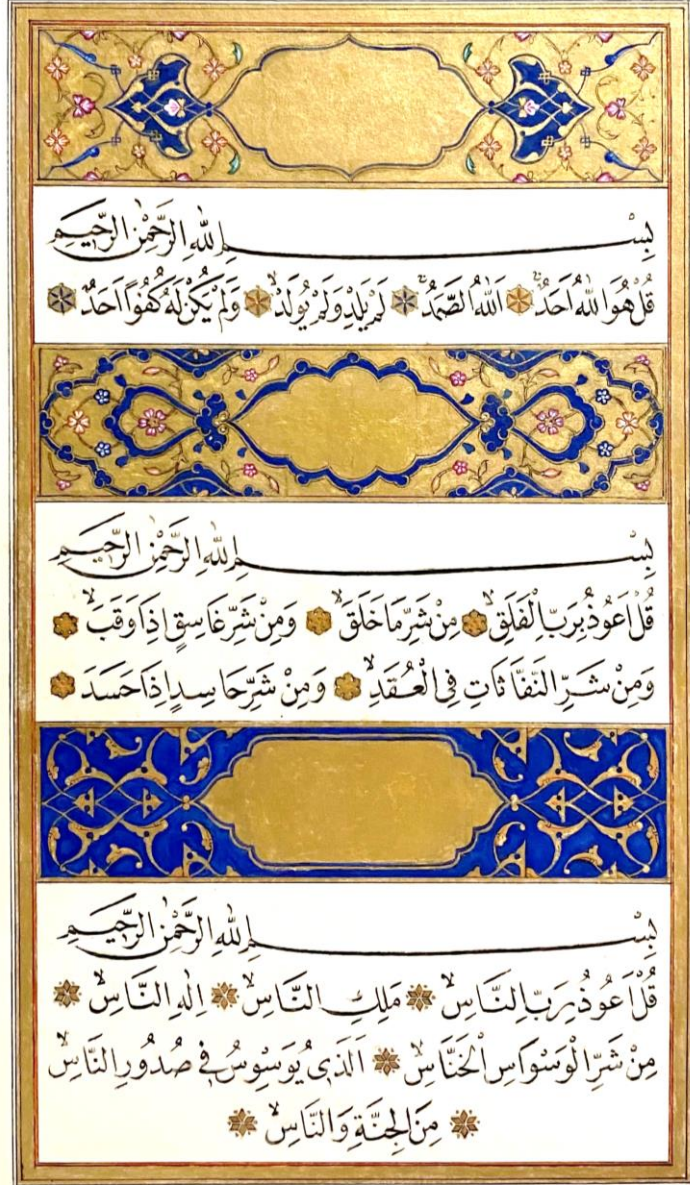 بِسْمِ اللّٰهِ الرَّحْمٰنِ الرَّحِيمِ
قُلْ هُوَ اللّٰهُ اَحَدٌ اَللّٰهُ الصَّمَدُ لَمْ يَلِدْ وَلَمْ يُولَدْ وَلَمْ يَكُنْ لَهُ كُفُوًا اَحَدٌ
بِسْمِ اللّٰهِ الرَّحْمٰنِ الرَّحِيمِ
قُلْ اَعُوذُ بِرَبِّ الْفَلَقِ مِنْ شَرِّ مَا خَلَقَ وَمِنْ شَرِّ غَاسِقٍ اِذَا وَقَبَ
وَمِنْ شَرِّ النَّفَّاثَاتِ فِي الْعُقَدِ وَمِنْ شَرِّ حَاسِدٍ اِذَا حَسَدَ
بِسْمِ اللّٰهِ الرَّحْمٰنِ الرَّحِيمِ
قُلْ اَعُوذُ بِرَبِّ النَّاسِ مَلِكِ النَّاسِ اِلٰهِ النَّاسِ
مِنْ شَرِّ الْوَسْوَاسِ الْخَنَّاسِ اَلَّذِي يُوَسْوِسُ فِي صُدُورِ النَّاسِ
مِنَ الْجِنَّةِ وَالنَّاسِ